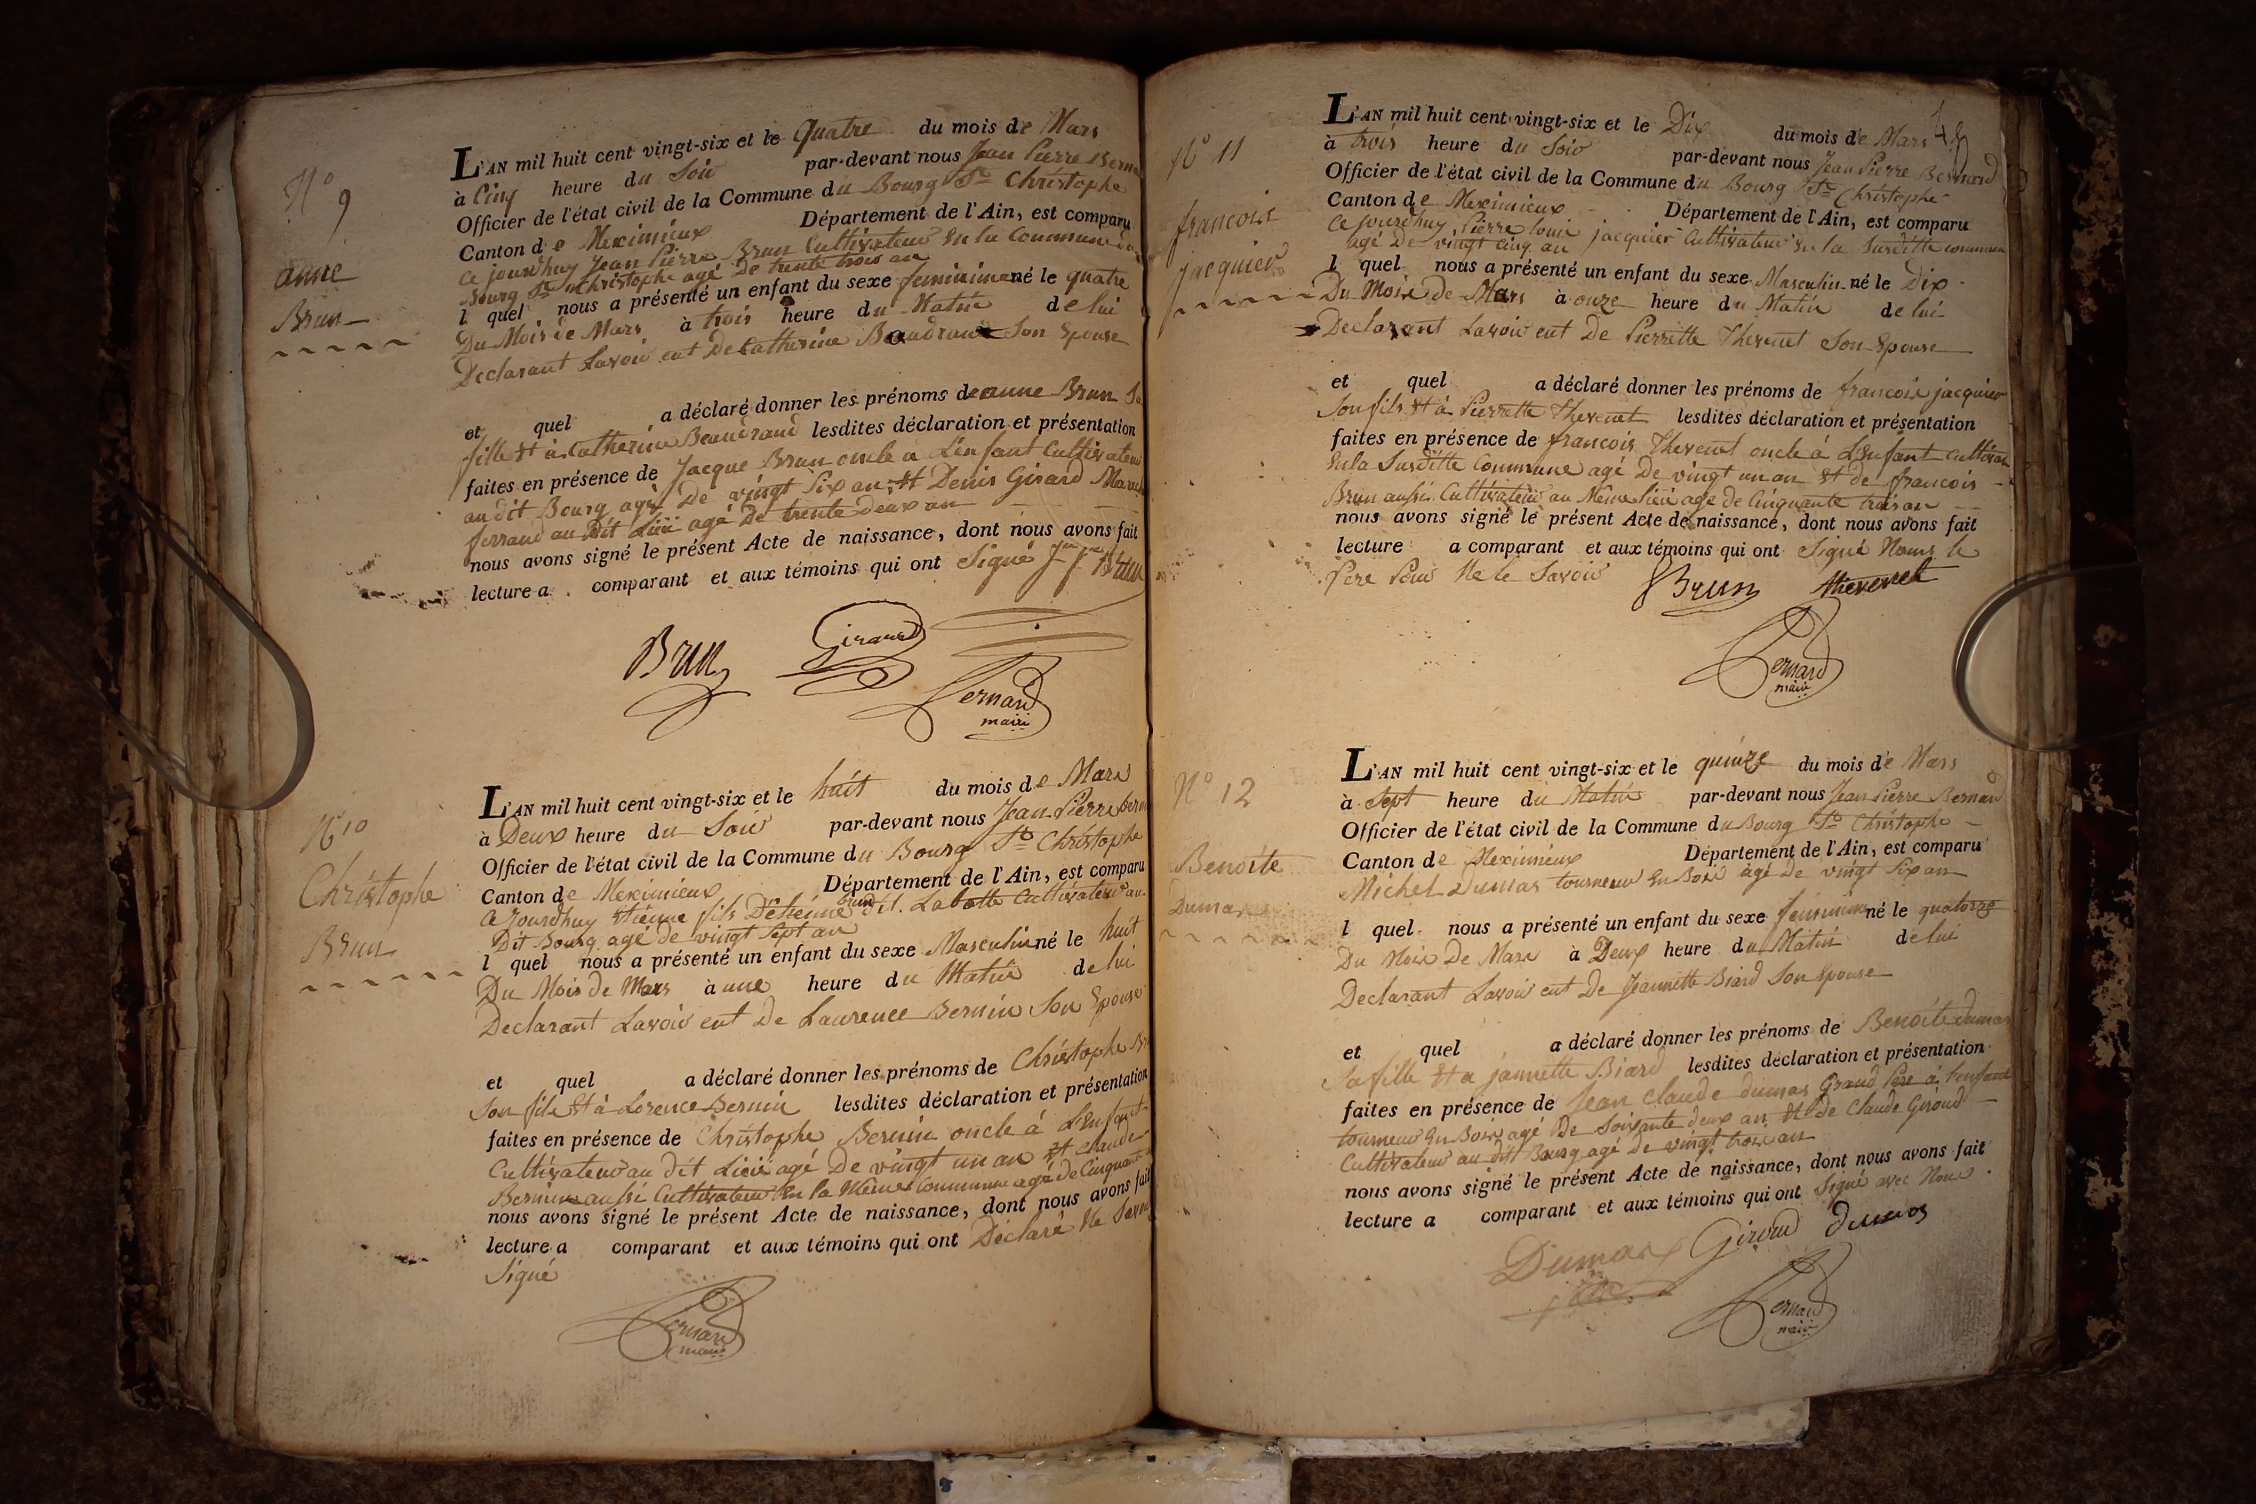 N° 9
anne
Brun
L'AN mil huit cent vingt-six et le quatre du mois de Mars
à Cinq heure du Soir par-devant nous Jean Pierre Berna
Officier de l'état civil de la Commune du Bourg St Christophe
Canton de Meximieux Département de l'Ain, est comparu
Ce jourdhuy Jean Pierre Brun Cultivateur En la Commune du
Bourg St Christophe agé De trente trois an
l quel nous a présenté un enfant du sexe feminim né le quatre
Du Mois de Mars à trois heure du Matin de lui
Declarant Lavoir eut De Catherine Baudrand Son Epouse
et quel a déclaré donner les prénoms de anne Brun Sa
fille Et à Catherine Beaudrand lesdites déclaration et présentation
faites en présence de Jacque Brun oncle a L'enfant Cultivateur
audit Bourg agé De vingt Six an Et Denis Girard Marechal
ferrand au Dit Lieu agé De trente Deux an
nous avons signé le présent Acte de naissance, dont nous avons fait
lecture a comparant et aux témoins qui ont Signé J P Brun
Brun Girard
Bernard
maire
N° 10
Christophe
Brun
L'AN mil huit cent vingt-six et le huit du mois de Mars
à Deux heure du Soir par-devant nous Jean Pierre Bern
Officier de l'état civil de la Commune du Bourg St Christophe
Canton de Meximieux Département de l'Ain, est comparu
Ce Jourdhuy Etienne fils D'Etienne Brun dit Labatte Cultivateur au
Dit Bourg agé de vingt Sept an
l quel nous a présenté un enfant du sexe Masculin né le huit
Du Mois de Mars à une heure du Matin de lui
Declarant Lavoir eut De Laurence Bernin Son Epouse
et quel a déclaré donner les prénoms de Christophe Br
Son fils Et à Lorence Bernin lesdites déclaration et présentation
faites en présence de Christophe Bernin oncle à L'Enfant
Cultivateur au dit Lieu agé De vingt un an Et Claude
Bernin aussi Cultivateur En la Même Commune agé de Cinquante
nous avons signé le présent Acte de naissance, dont nous avons fait
lecture a comparant et aux témoins qui ont Déclaré Ne Savoir
Signé
Bernard
maire
48
N° 11
francois
jacquier
L'AN mil huit cent vingt-six et le Dix du mois de Mars
à trois heure du Soir par-devant nous Jean Pierre Bernard
Officier de l'état civil de la Commune du Bourg St Christophe
Canton de Meximieux Département de l'Ain, est comparu
Ce jourdhuy Pierre louis jacquier Cultivateur En la Susditte commune
agé De vingt Cinq an
l quel nous a présenté un enfant du sexe Masculin né le Dix
Du Mois de Mars à onze heure du Matin de lui
Declarant Lavoir eut De Pierrette Thevenet Son Epouse
et quel a déclaré donner les prénoms de francois jacquier
Son fils Et à Pierrette Thevenet lesdites déclaration et présentation
faites en présence de francois Thevenet oncle à L'Enfant cultivat
En la Susditte Commune agé De vingt un an Et de francois
Brun aussi Cultivateur au Même Lieu agé de Cinquante trois an
nous avons signé le présent Acte de naissance, dont nous avons fait
lecture a comparant et aux témoins qui ont Signé Nous le
Pere Pour Ne le Savoir
Brun thevenet
Bernard
maire
N° 12
Benoite
Dumas
L'AN mil huit cent vingt-six et le quinze du mois de Mars
à Sept heure du Matin par-devant nous Jean Pierre Bernard
Officier de l'état civil de la Commune du Bourg St Christophe
Canton de Meximieux Département de l'Ain, est comparu
Michel Dumas tourneur En Bois agé De vingt Six an
l quel nous a présenté un enfant du sexe feminim né le quatorze
Du Mois De Mars à Deux heure du Matin de lui
Declarant Lavoir eut De Jeannette Biard Son Epouse
et quel a déclaré donner les prénoms de Benoite dumas
Sa fille Et a jannette Biard lesdites déclaration et présentation
faites en présence de Jean Claude dumas Grand Pere à l'enfant
tourneur En Bois agé De Soixante deux an Et De Claude Giroud
Cultivateur au dit Bourg agé de vingt trois an
nous avons signé le présent Acte de naissance, dont nous avons fait
lecture a comparant et aux témoins qui ont Signé avec Nous
Dumas Giroud dumas
Bernard
maire